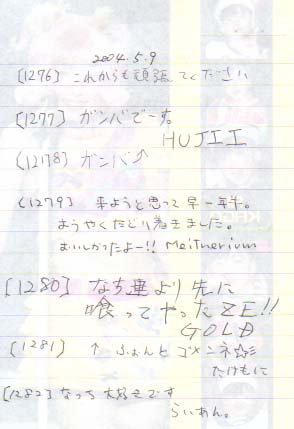 2004.5.9
[1276] これからも頑張ってください
[1277] ガンバでーす。
HUJII
(1278) ガンバ↗
(1279) 来ようと思って早一年半。
ようやくたどり着きました。
おいしかったよー!! Meitnerium
[1280] なち連より先に
喰ってやったZE!!
GOLD
[1281] ↑ ふぉんと ゴメンネ☆彡
たけもに
[1282] なっち大好きです
らいあん。